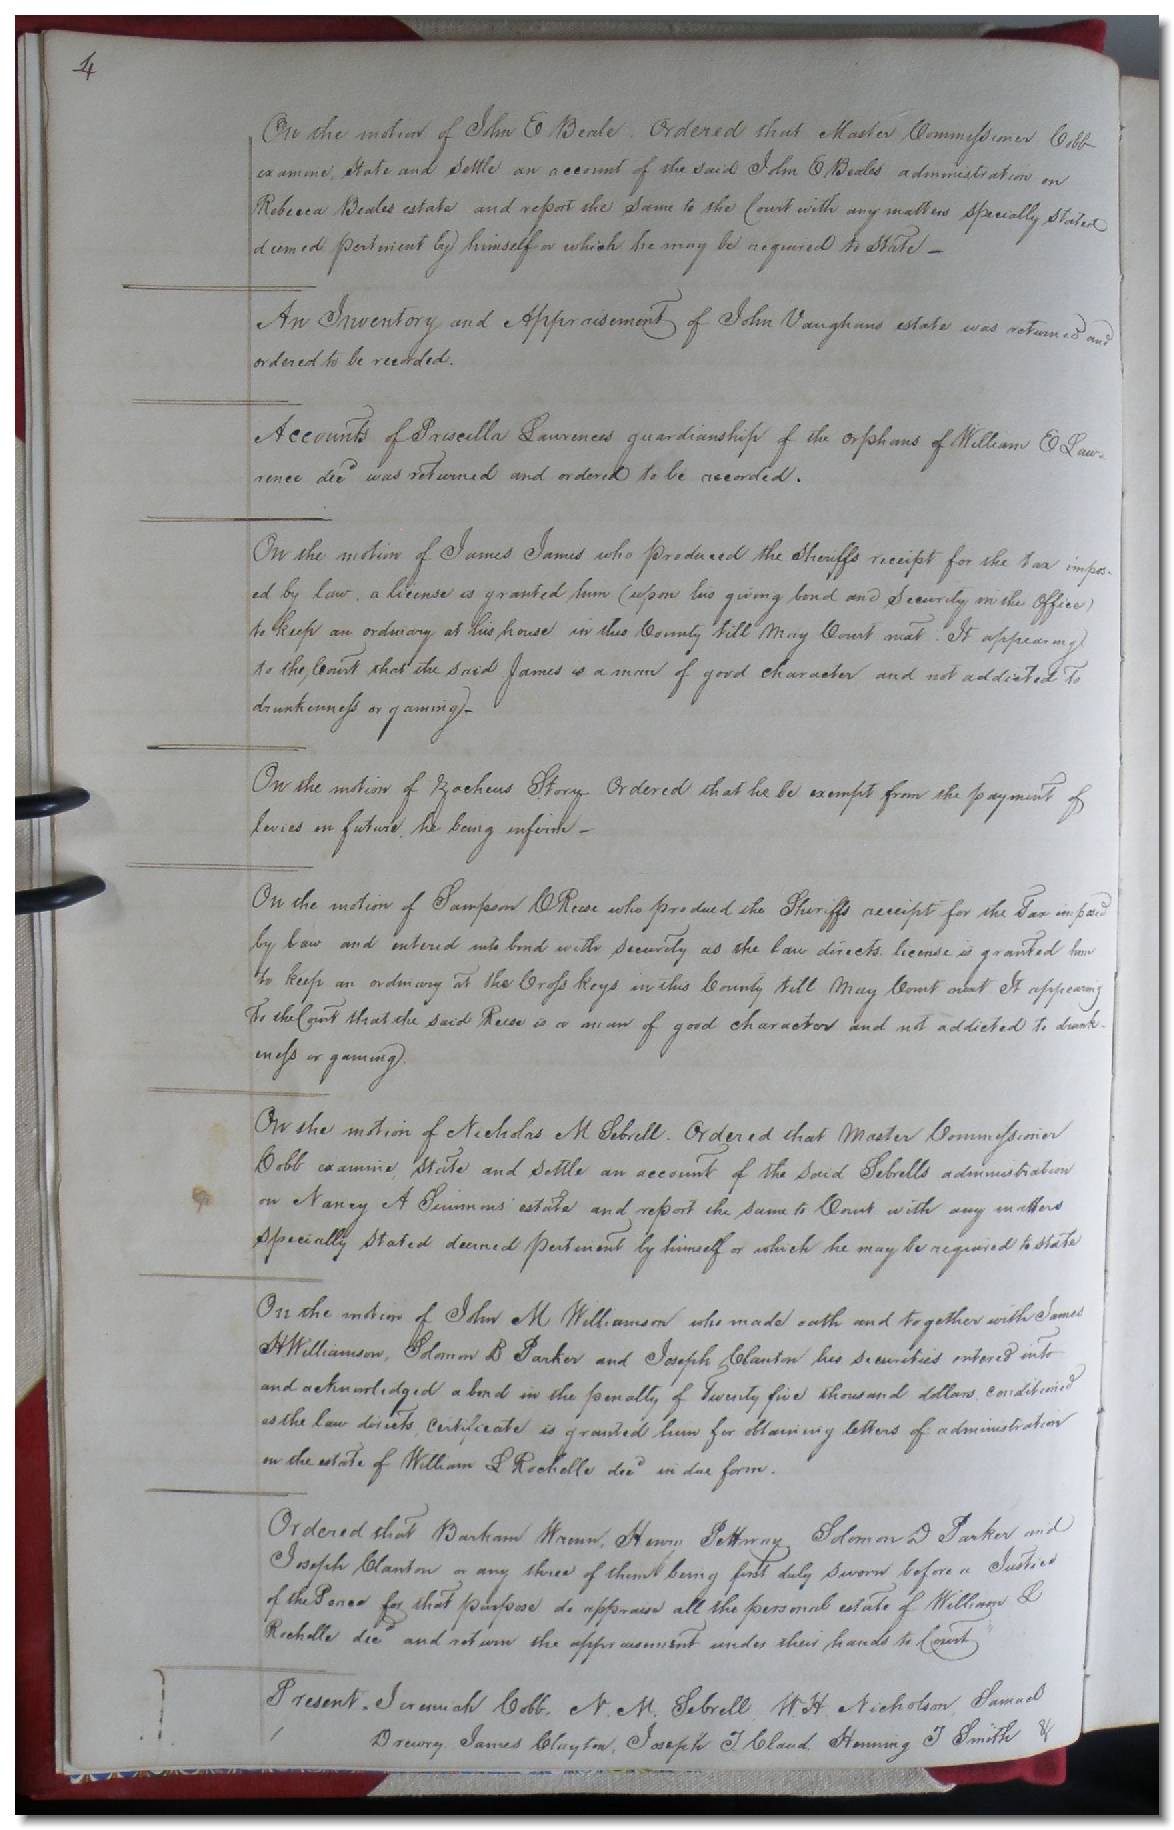 4
On the motion of John E Beale. Ordered that Master Commissioner Cobb
examine, state and settle an account of the said John E Beales administration on
Rebecca Beales estate and report the same to the Court with any matters specially stated
deemed pertinent by himself or which he may be required to state –
An Inventory and Appraisement of John Vaughans estate was returned and
ordered to be recorded.
Accounts of Priscilla Lawrences guardianship of the orphans of William E Law-
rence decd was returned and ordered to be recorded.
On the motion of James James who produced the Sheriffs receipt for the tax impos-
ed by law, a license is granted him (upon his giving bond and Security in the Office)
to keep an ordinary at his house in this County till May Court next. It appearing
to the Court that the said James is a man of good character and not addicted to
drunkenness or gaming –
On the motion of Zacheus Story. Ordered that he be exempt from the payment of
levies in future, he being infirm –
On the motion of Sampson C Reese who produced the Sheriffs receipt for the Tax imposed
by law and entered into bond with security as the law directs. license is granted him
to keep an ordinary at the Cross keys in this County till May Court next It appearing
to the Court that the said Reese is a man of good character and not addicted to drunk-
eness or gaming.
On the motion of Nicholas M Sebrell. Ordered that Master Commissioner
Cobb examine, state and settle an account of the said Sebrells administration
on Nancy A Simmons' estate and report the same to Court with any matters
specially stated deemed pertinent by himself or which he may be required to state
On the motion of John M Williamson who made oath and together with James
H Williamson, Solomon D Parker and Joseph Clanton his securities entered into
and acknowledged a bond in the penalty of Twenty five thousand dollars, conditioned
as the law directs, certificate is granted him for obtaining letters of administration
on the estate of William L Rochelle decd in due form.
Ordered that Barham Wrenn, Henry Pettway Solomon D Parker and
Joseph Clanton or any three of them being first duly sworn before a Justice
of the Peace for that purpose do appraise all the personal estate of William L
Rochelle decd and return the appraisement under their hands to Court
Present. Jeremiah Cobb, N. M. Sebrell, W H Nicholson, Samuel
Drewry, James Clayton, Joseph T Claud, Henning T Smith &